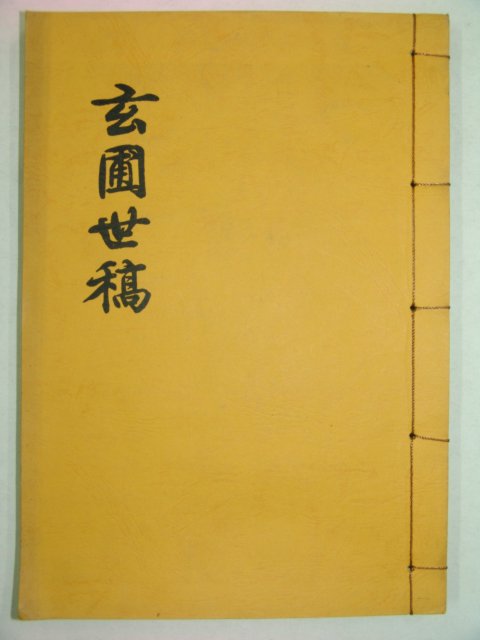 玄圃世稿